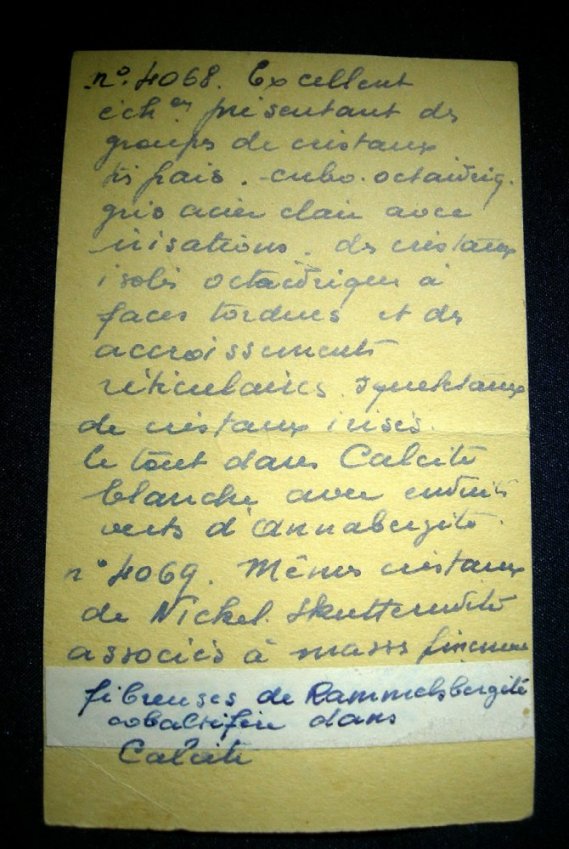 n°. 4068. Excellent
éch.on présentant des
groupes de cristaux
très frais. cubo. octaédriq.
gris acier clair avec
irisations. des cristaux
isolés octaédriques à
faces tordues et des
accroissements
réticulaires. squelettaux
de cristaux irisés.
le tout dans Calcite
blanche avec enduits
verts d'annabergite.
n° 4069. Mêmes cristaux
de Nickel. Skutterudite
associés à masses finement
fibreuses de Rammelsbergite
cobaltifère dans
Calcite